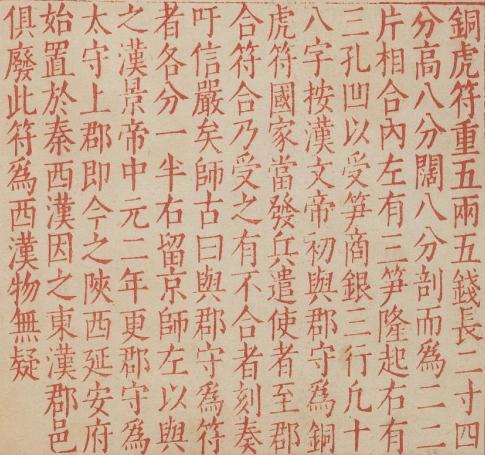 銅虎符重五兩五錢長二寸四
分高八分闊八分剖而爲二二
片相合內左有三笋隆起右有
三孔凹以受笋商銀三行凢十
八字按漢文帝初與郡守爲銅
虎符國家當發兵遣使者至郡
合符合乃受之有不合者刻奏
吁信嚴矣師古曰與郡守爲符
者各分一半右留京師左以與
之漢景帝中元二年更郡守爲
太守上郡即今之陝西延安府
始置於秦西漢因之東漢郡邑
俱廢此符爲西漢物無疑